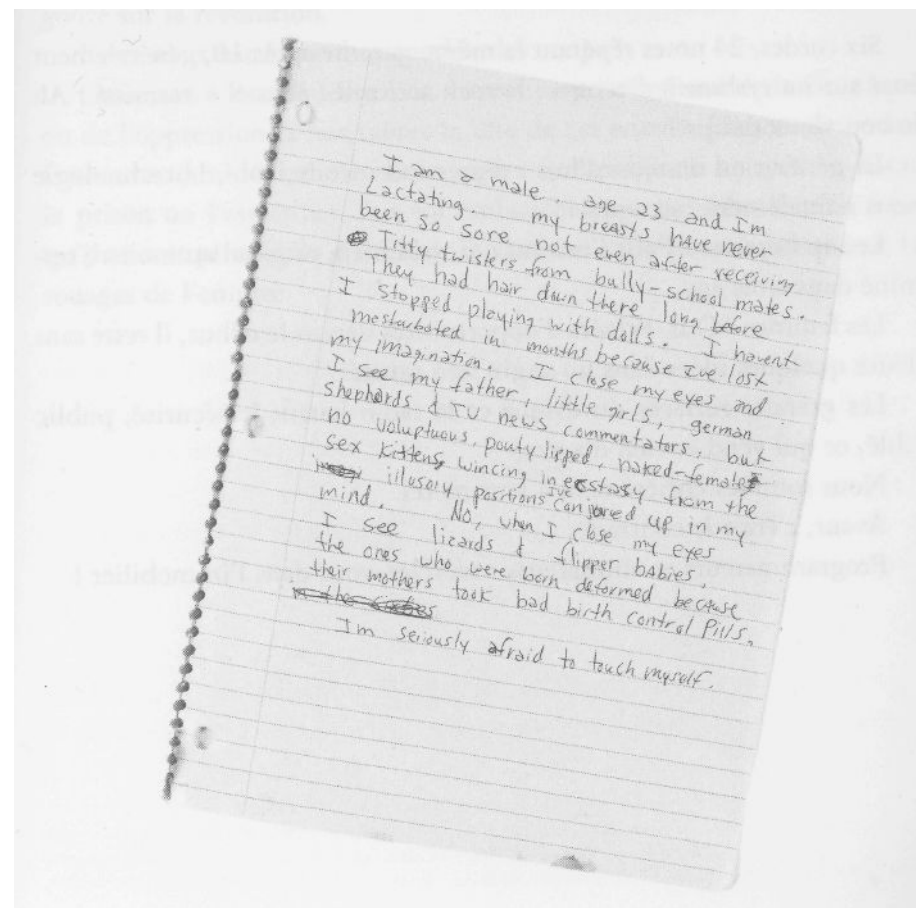 I am a male. age 23 and Im
Lactating. my breasts have never
been so sore not even after receiving
Titty twisters from bully-school mates.
They had hair down there long before
I stopped playing with dolls. I havent
masturbated in months because I've lost
my imagination. I close my eyes and
I see my father, little girls, german
shephards & TV news commentators, but
no voluptuous, pouty lipped, naked-female
sex kittens, wincing in ecstasy from the
illusory positions Ive conjured up in my
mind. No, when I close my eyes
I see lizards & flipper babies,
the ones who were born deformed because
their mothers took bad birth control Pills,
Im seriously afraid to touch myself.